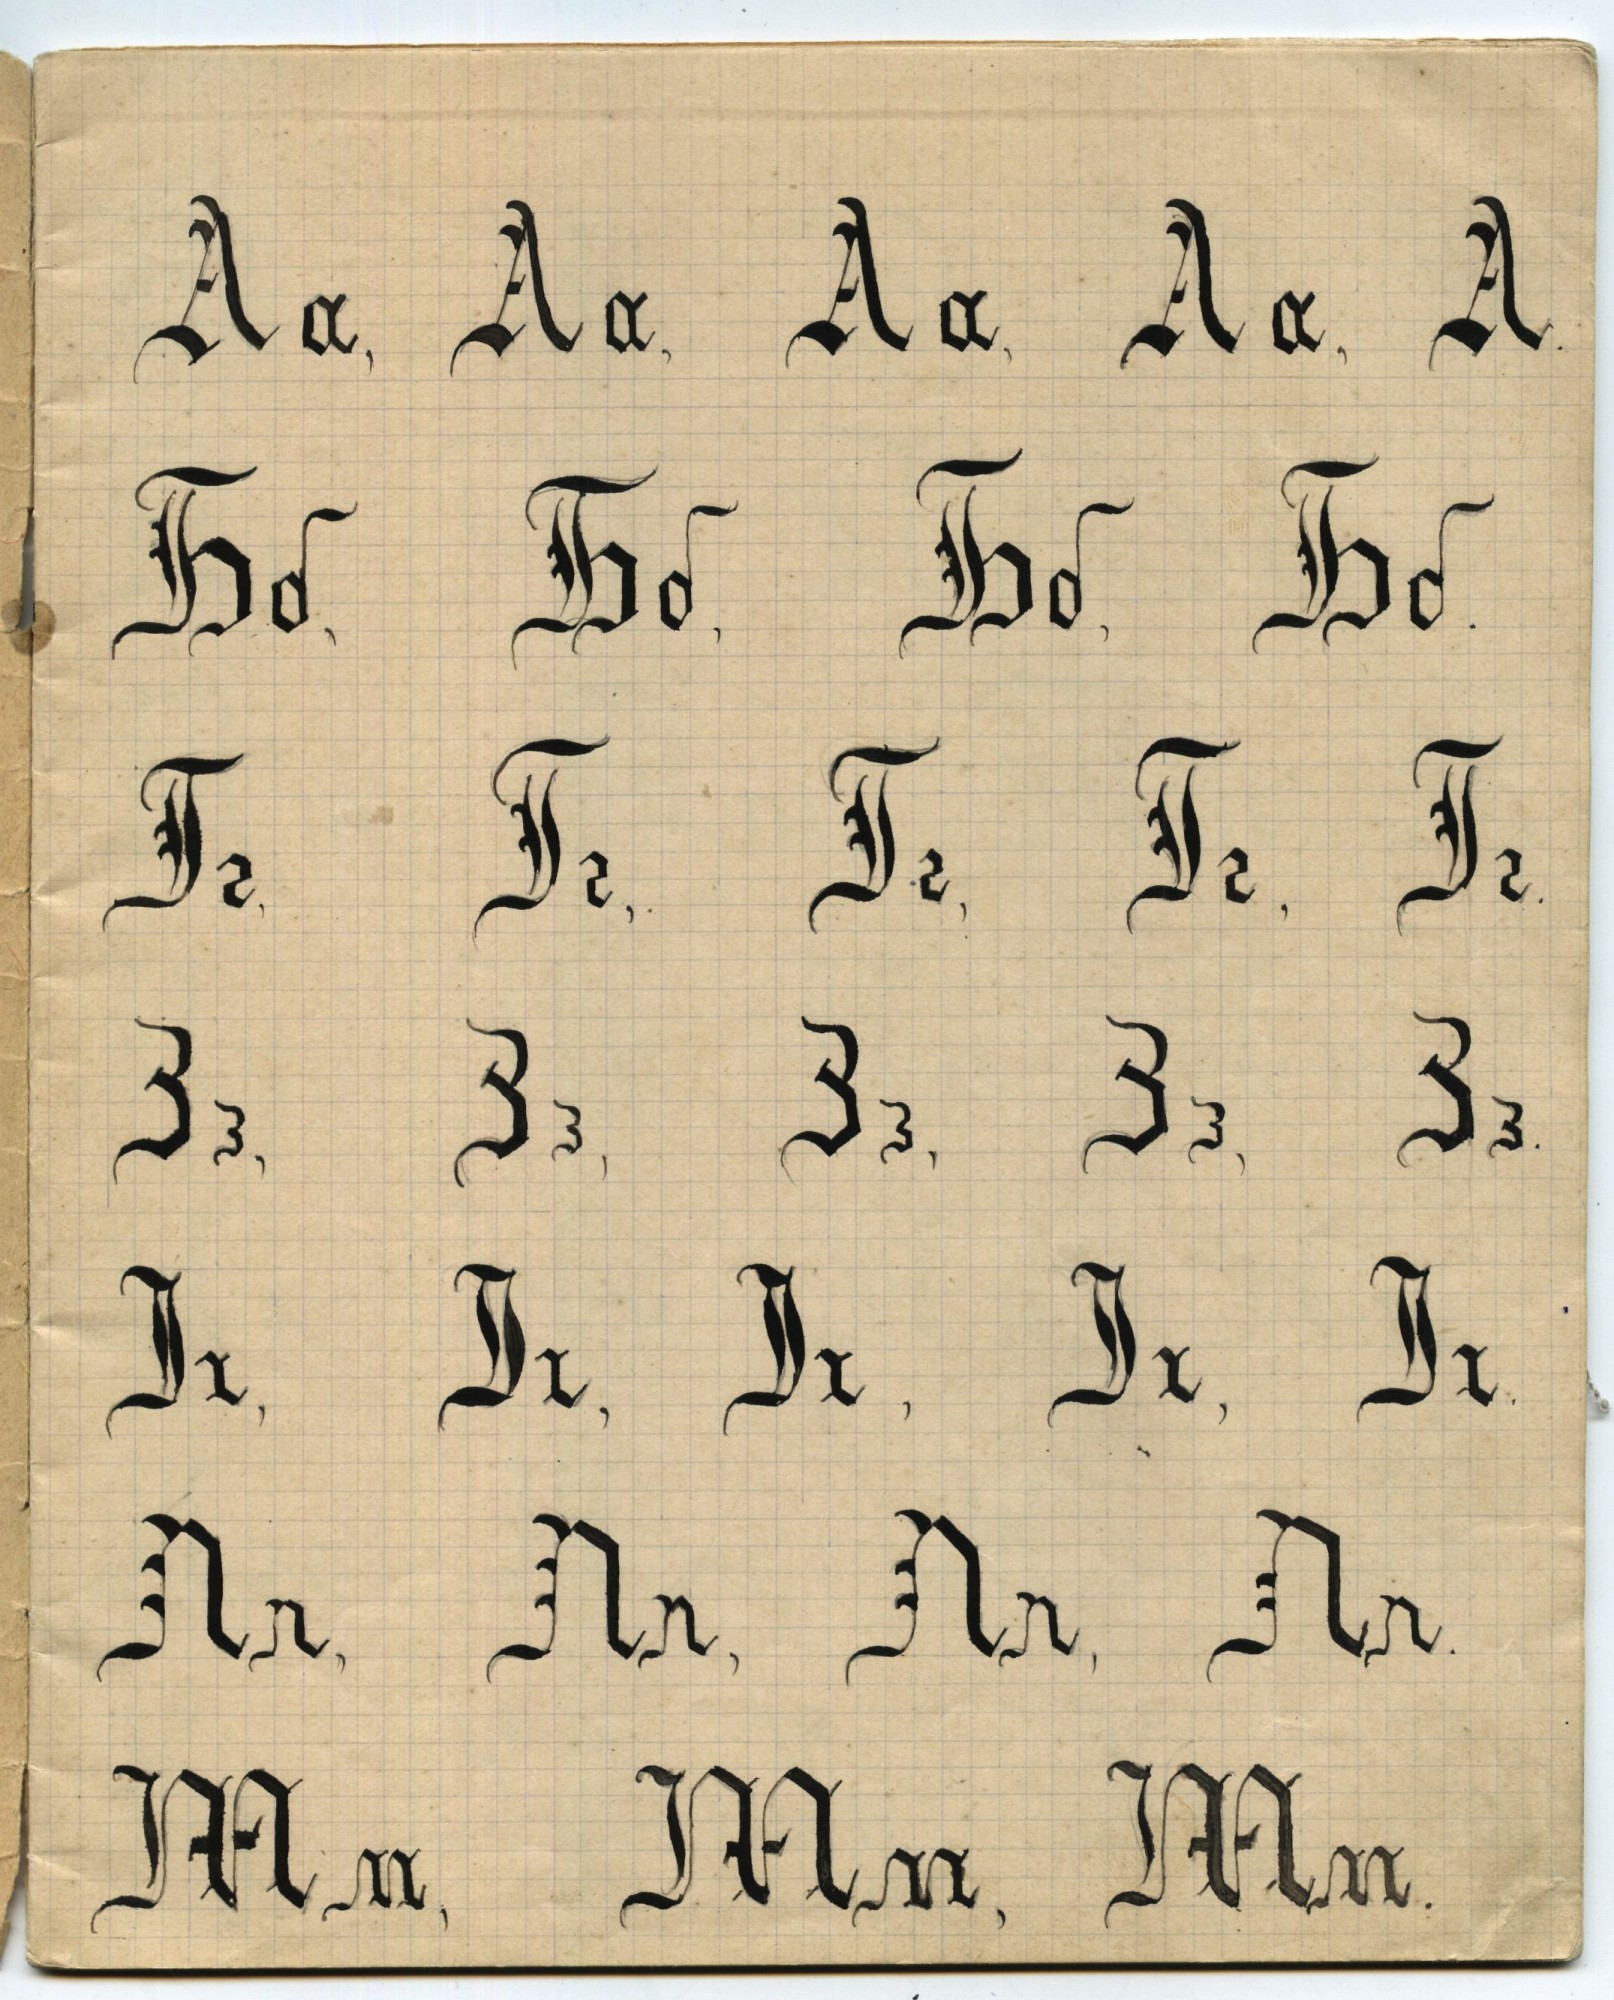 Аа, Аа, Аа, Аа, А.
Бб, Бб, Бб, Бб.
Гг, Гг, Гг, Гг, Гг.
Зз, Зз, Зз, Зз, Зз.
Іі, Іі, Іі, Іі, Іі.
Лл, Лл, Лл, Лл.
Мм, Мм, Мм.